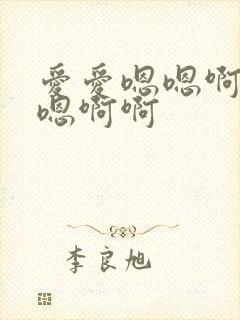 爱爱嗯嗯啊
嗯啊啊
李良旭